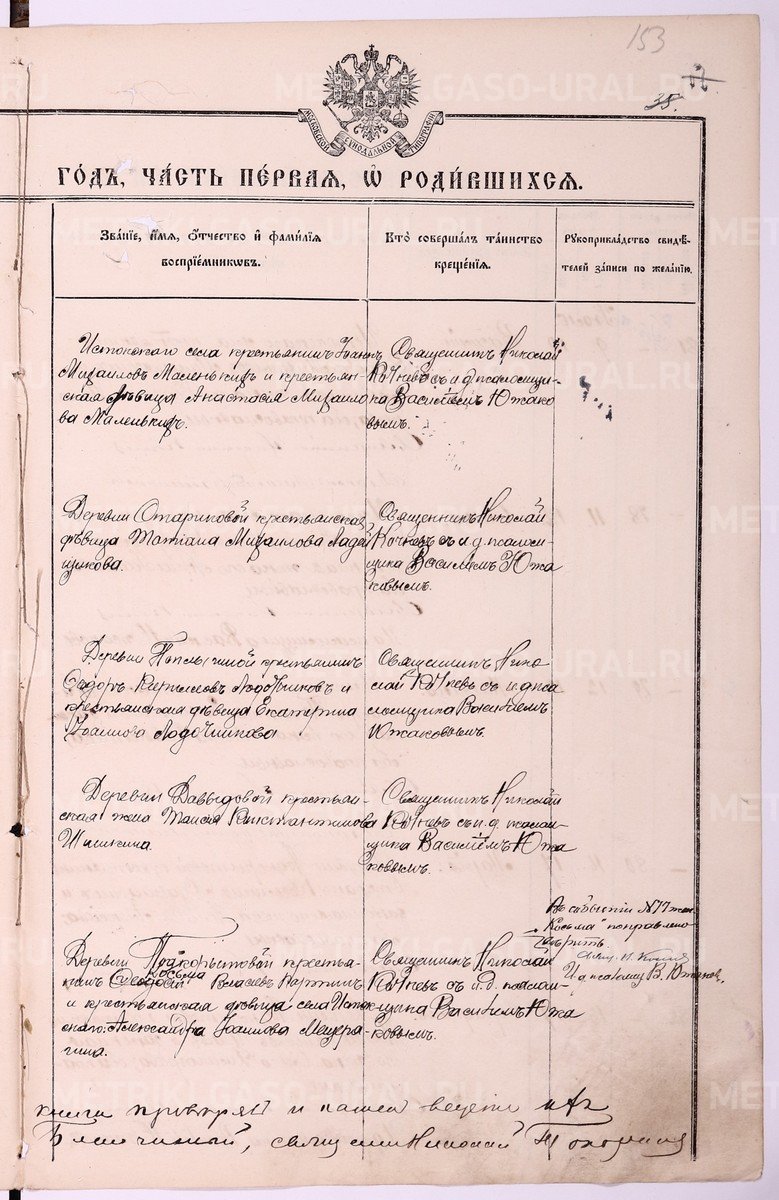 153
38.
МОСКОВСКОЙ СѴНОДАЛЬНОЙ ТИПОГРАФІИ
METRIKI.GASO-URAL.RU
ГОДЪ, ЧАСТЬ ПЕРВАЯ, Ѡ РОДИВШИХСЯ.
Званіе, имя, отчество и фамилія воспріемниковъ.
Кто совершалъ таинство крещенія.
Рукоприкладство свидѣтелей записи по желанію.
Истокскаго села крестьянинъ Іоаннъ
Михаиловъ Маленькихъ и крестьян-
ская дѣвица Анастасія Михаило
ва Маленькихъ.
Священникъ Николай
Кочневъ съ и.д. псаломщи-
ка Василіемъ Южако
вымъ.
Деревни Стариковой крестьянская
дѣвица Татіана Михаилова Ладей
щикова.
Священникъ Николай
Кочневъ съ и.д. псалом-
щика Василіемъ Южа
ковымъ.
Деревни крестьянинъ
Ѳедоръ Лодочниковъ и
крестьянская дѣвица Екатерина
Іоаннова Лодочникова
Священникъ Нико
лай Кочневъ съ и.д. пса
ломщика Василіемъ
Южаковымъ.
Деревни Давыдовой крестьян-
ская жена Таисія Константинова
Шишкина.
Священникъ Николай
Кочневъ съ и.д. псалом-
щика Василіемъ Южа
ковымъ.
Деревни Подкорытовой крестья-
нинъ Косьма Власіевъ Картинъ
и крестьянская дѣвица села Исток
скаго Александра Іоаннова Мещеря
гина.
Священникъ Николай
Кочневъ съ и.д. псалом-
щика Василіемъ Южа
ковымъ.
Въ событіи №77
"Косьма" поправлено
вѣрить.
Свящ. Н. Кочневъ
И.д. псаломщ. В. Южаковъ.
книги и
Благочинный, священникъ Николай